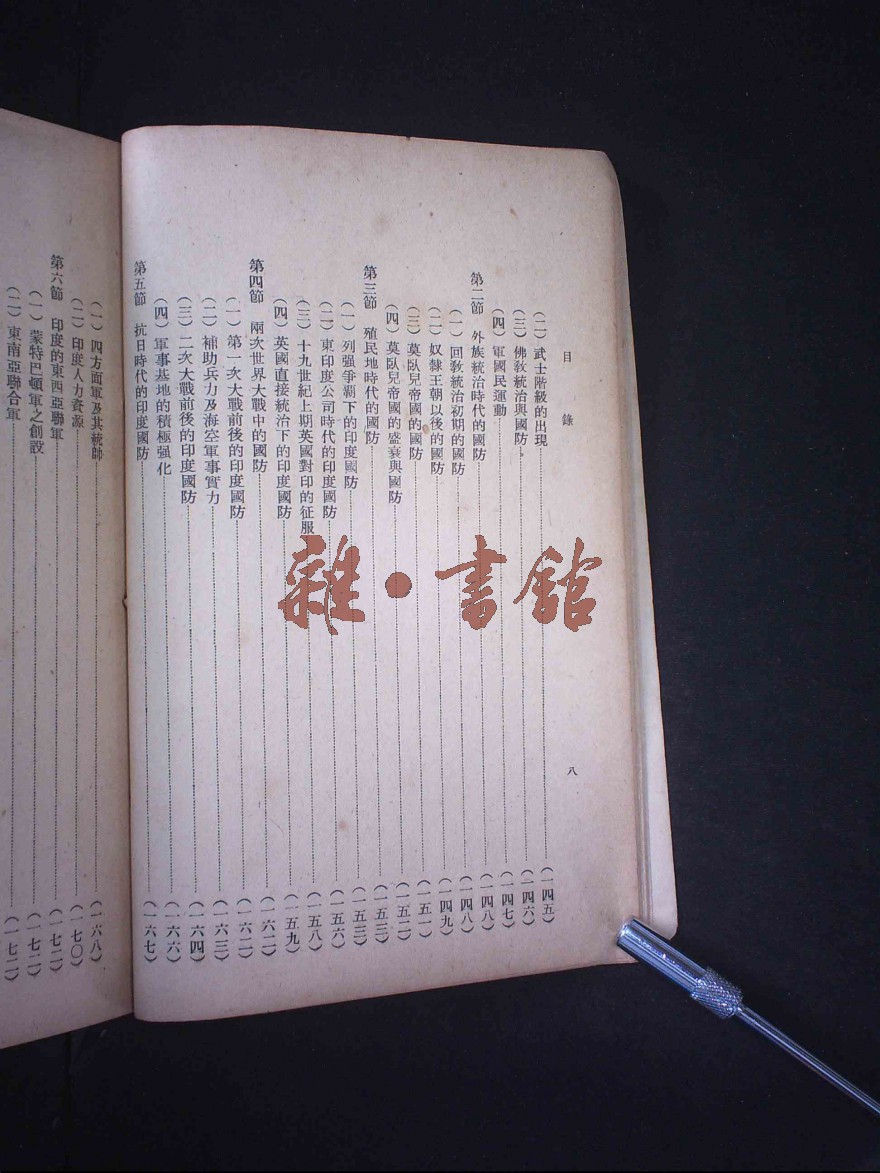 目錄 八
(二) 武士階級的出現 (一四五)
(三) 佛教統治與國防 (一四六)
(四) 軍國民運動 (一四七)
第二節 外族統治時代的國防 (一四八)
(一) 回教統治初期的國防 (一四八)
(二) 奴隸王朝以後的國防 (一四九)
(三) 莫臥兒帝國的國防 (一五一)
(四) 莫臥兒帝國的盛衰與國防 (一五二)
第三節 殖民地時代的國防 (一五三)
(一) 列强爭霸下的印度國防 (一五三)
(二) 東印度公司時代的印度國防 (一五六)
(三) 十九世紀上期英國對印的征服 (一五八)
(四) 英國直接統治下的印度國防 (一五九)
第四節 兩次世界大戰中的國防 (一六二)
(一) 第一次大戰前後的印度國防 (一六二)
(二) 補助兵力及海空軍事實力 (一六三)
(三) 二次大戰前後的印度國防 (一六四)
(四) 軍事基地的積極强化 (一六六)
第五節 抗日時代的印度國防 (一六七)
(一) 四方面軍及其統帥 (一六八)
(二) 印度人力資源 (一七〇)
第六節 印度的東西亞聯軍 (一七二)
(一) 蒙特巴頓軍之創設 (一七二)
(二) 東南亞聯合軍 (一七二)
雜·書館